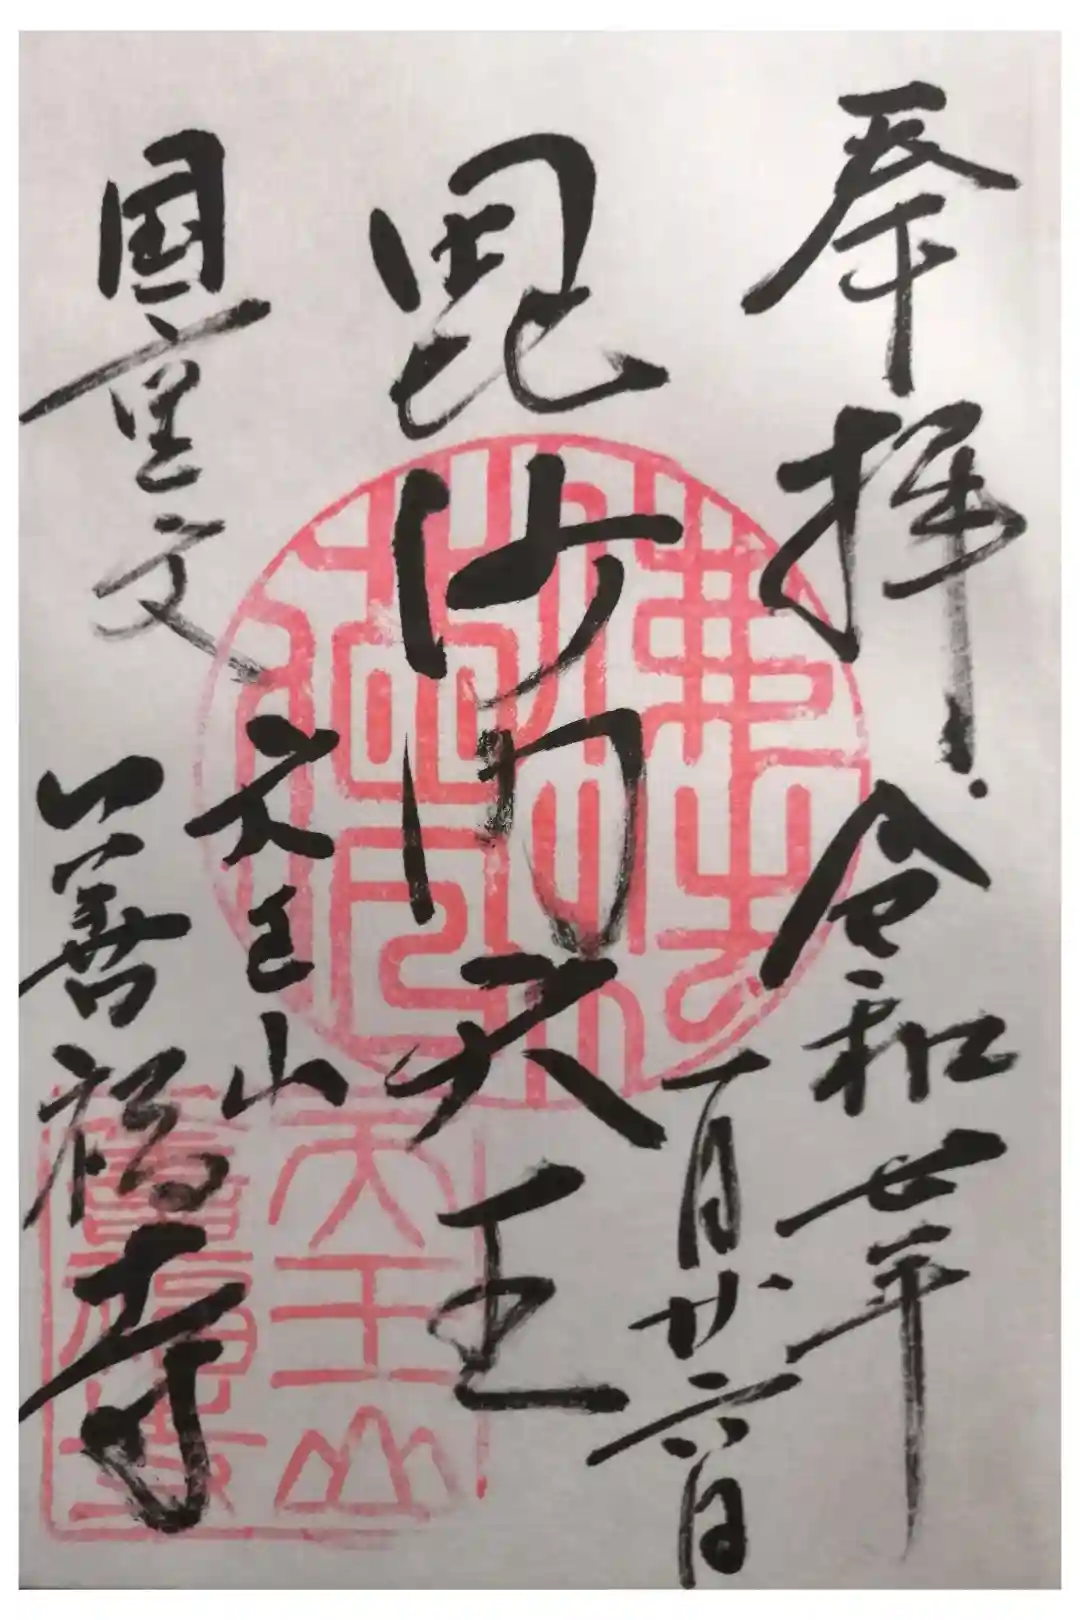 奉拝
令和
年
一月廿六日
毘沙門天王
国重文
天王山
善福寺
天王山